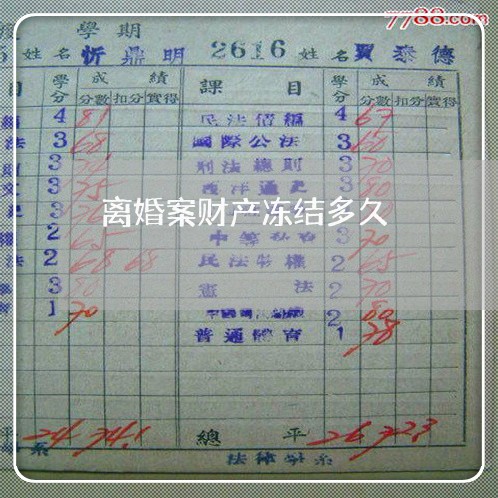 7788.com
學期
姓名 忻鼎明 2616 姓名 賈泰德
目 學分 成績 課目 學分 成績
分數 扣分 實得 分數 扣分 實得
4 81 民法債編 4 67
法 3 68 國際公法 3 60
3 刑法總則 3 70
3 75 西洋通史 3 80
離婚案财产冻结多久
2 65 3 70
法 2 68 68 民法物權 2 65
3 80 憲法 2 70
1 70 2 80
普通體育 1 78
平 24 74.1 總平 26 72.3
系 法律學系